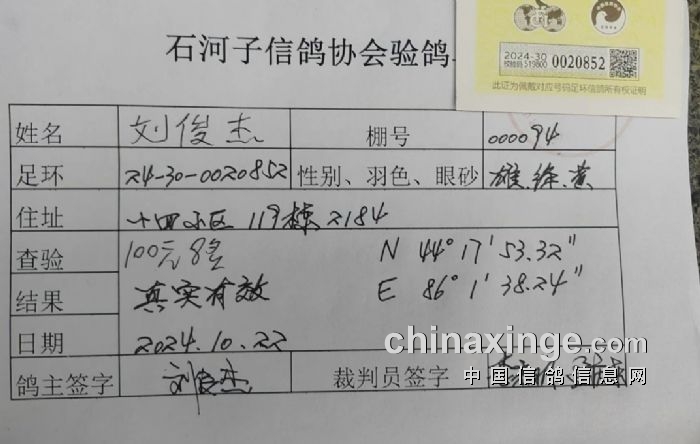 2024-30
校验码 519800
0020852
此证为佩戴对应号码足环信鸽所有权证明
石河子信鸽协会验鸽
姓名 刘俊杰 棚号 000094
足环 24-30-0020852 性别、羽色、眼砂 雄.绛.黄
住址 十四小区 119栋2184
查验 100元 N 44°17'53.32"
结果 真实有效 E 86°1'38.24"
日期 2024.10.22
鸽主签字 刘俊杰 裁判员签字
chinaxinge.com
中国信鸽信息网